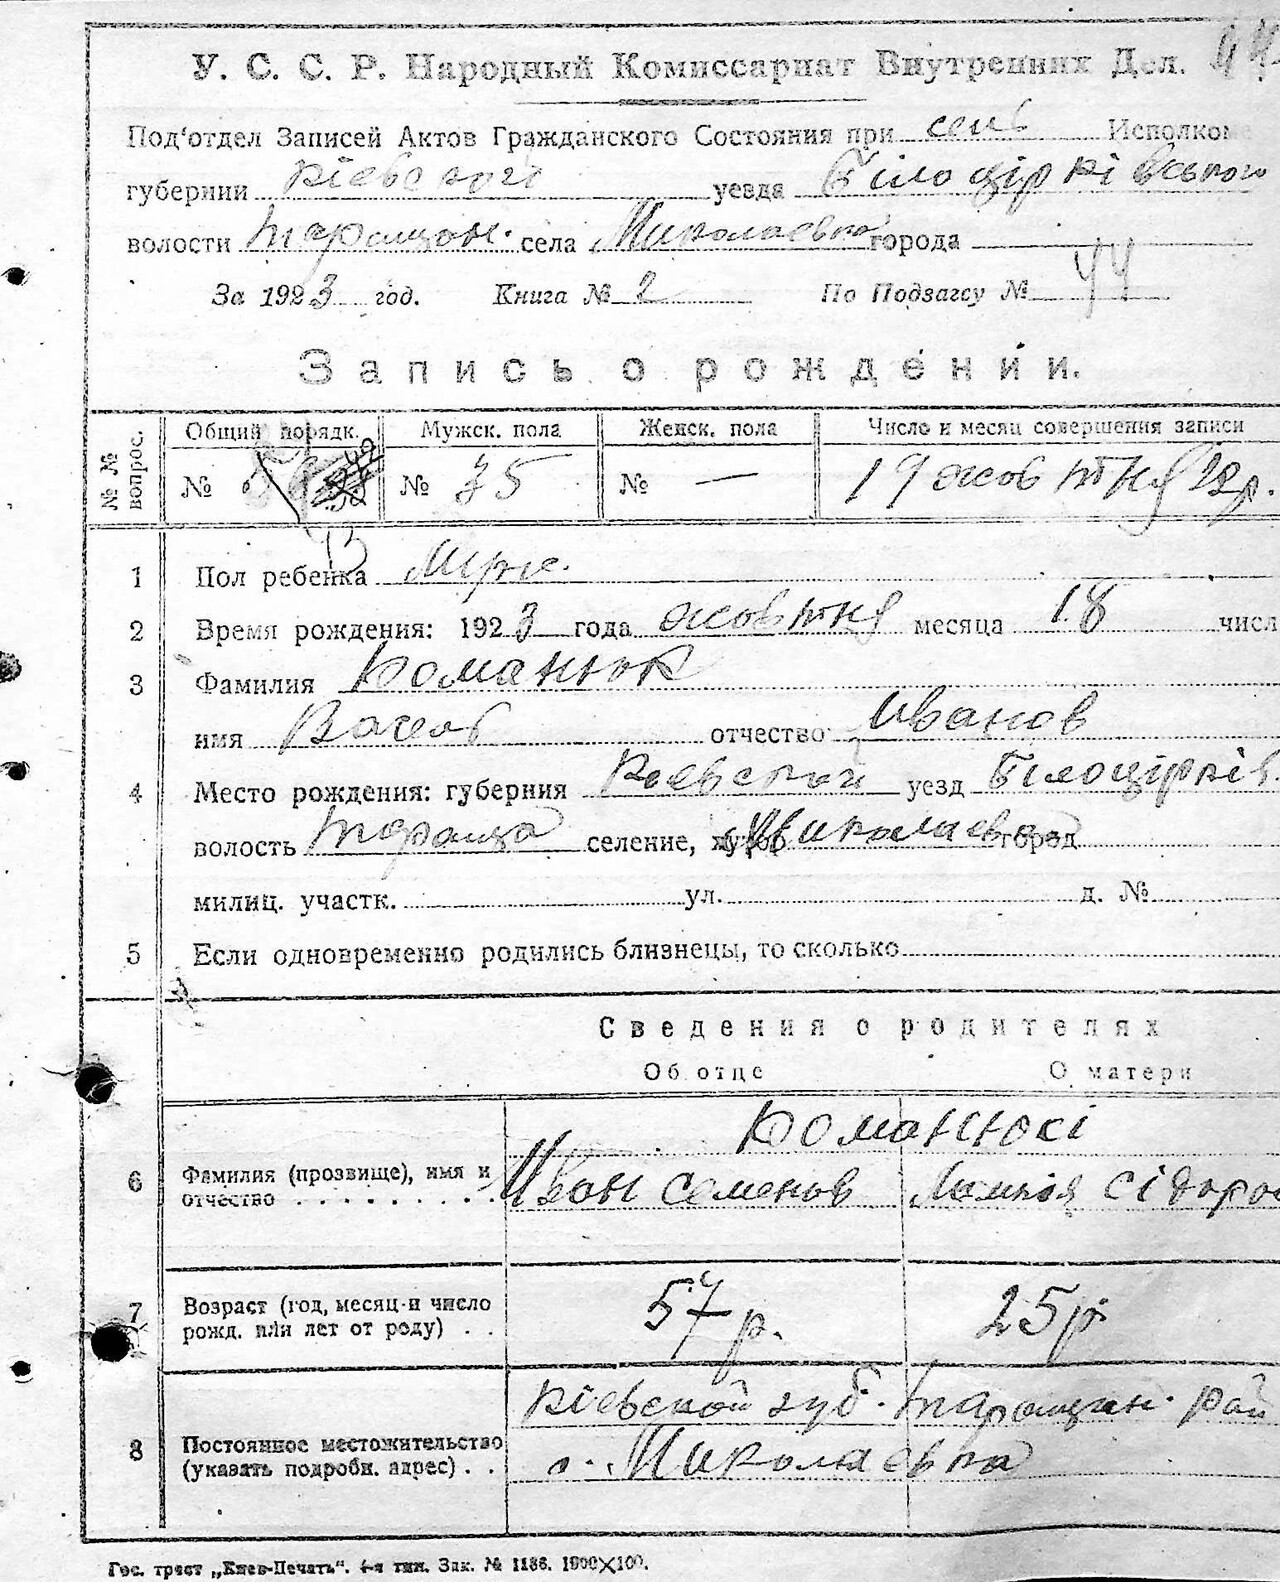 У. С. С. Р. Народный Комиссариат Внутренних Дел.
Под'отдел Записей Актов Гражданского Состояния при сель Исполкоме
губернии Кіевской уезда Білоцірківського
волости Таращан. села Миколаевка города
За 1923 год. Книга № 2 По Подзагсу № 44
Запись о рождении.
№ № вопрос. Общий порядк. Мужск. пола Женск. пола Число и месяц совершения записи
№ № 35 № — 19 жовтня
1 Пол ребенка Муж.
2 Время рождения: 1923 года жовтня месяца 18 числ
3 Фамилия Команюк
имя Василь отчество Иванов
4 Место рождения: губерния Киевской уезд Білоцірків.
волость Тараща селение, хутор Миколаевка город
милиц. участк. ул. д. №
5 Если одновременно родились близнецы, то сколько
Сведения о родителях
Об отце О матери
Команюкі
6 Фамилия (прозвище), имя и
отчество . . . . . . . . . Иван Семенов Сідоро
7 Возраст (год, месяц и число
рожд. или лет от роду) . . 57 р. 25 р.
Кіевской губ. Таращан. рай
8 Постоянное местожительство
(указать подробн. адрес) . . с. Миколаевка
Гос. трест „Киев-Печать“. 4-я тип. Зак. № 1186. 1900×100.